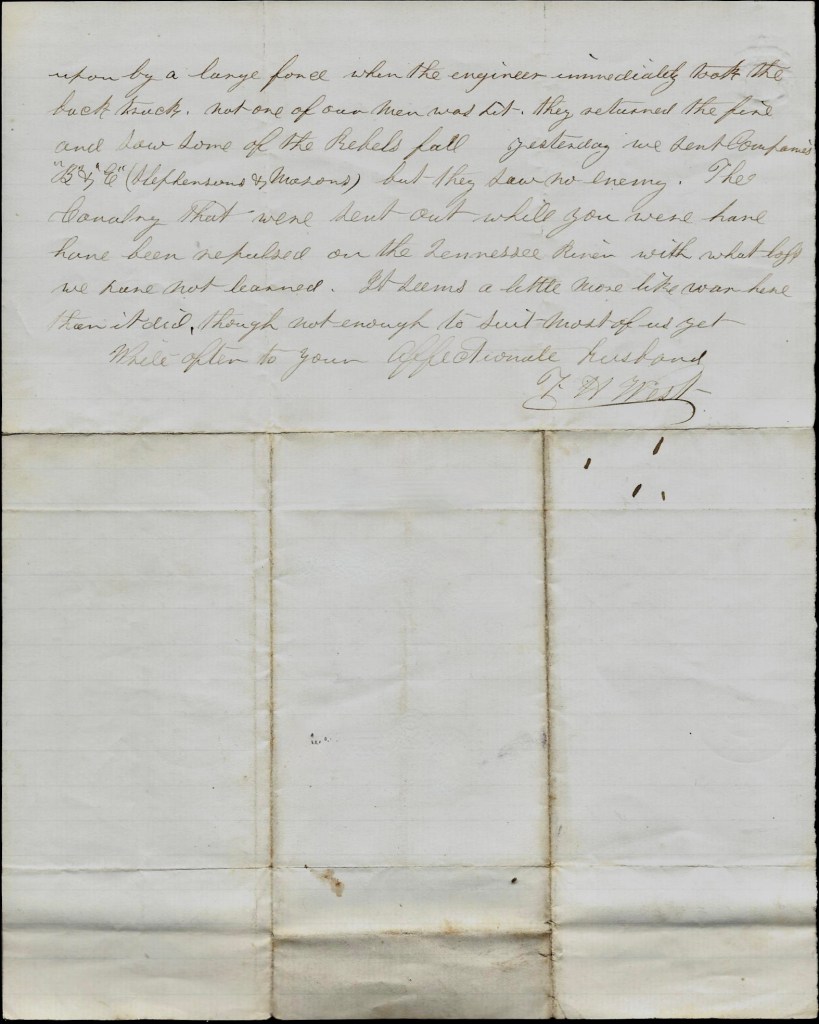 upon by a large force when the engineer immediately took the
back track. not one of our men was hit. they returned the fire
and saw some of the Rebels fall yesterday we sent Companies
"B" & "E" (Stephensons & Masons) but they saw no enemy. The
Cavalry that were sent out while you were here
have been repulsed on the Tennessee River with what loss
we have not learned. It seems a little more like war here
than it did, though not enough to suit most of us yet
Write often to your affectionate husband
F H West